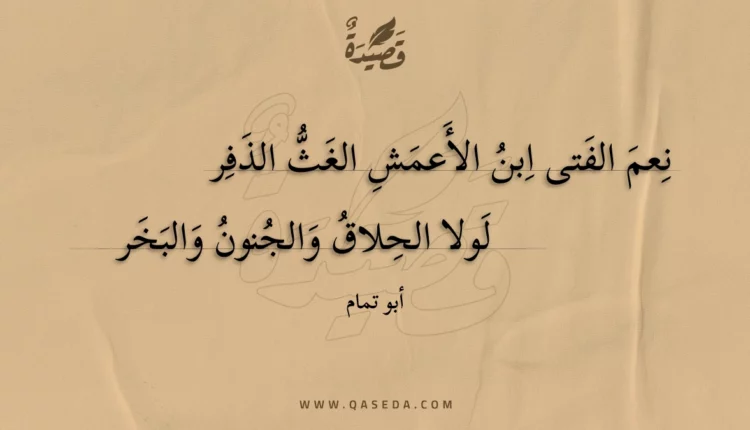 قَصِيدَةٌ
نِعمَ الفَتى اِبنُ الأَعمَشِ الغَثُّ الذَفِر
لَولا الحِلاقُ وَالجُنونُ وَالبَخَر
أبو تمام
WWW.QASEDA.COM